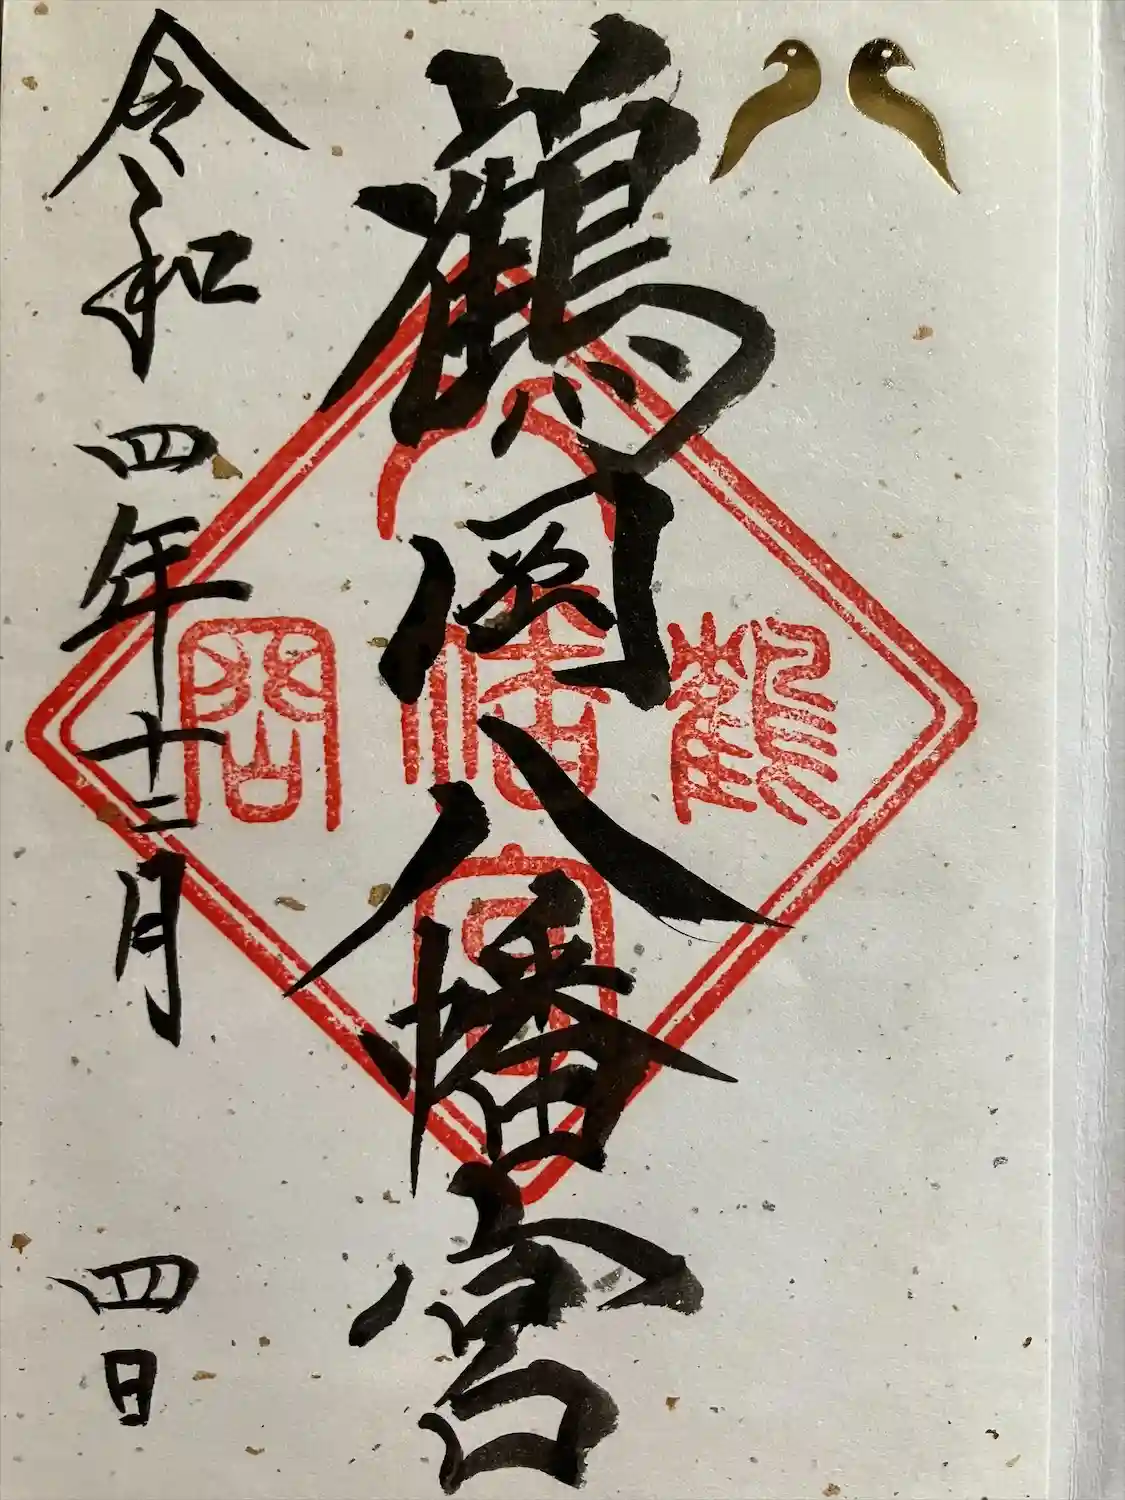 鶴岡八幡宮
鶴
八幡宮
岡
令和四年十二月
四日